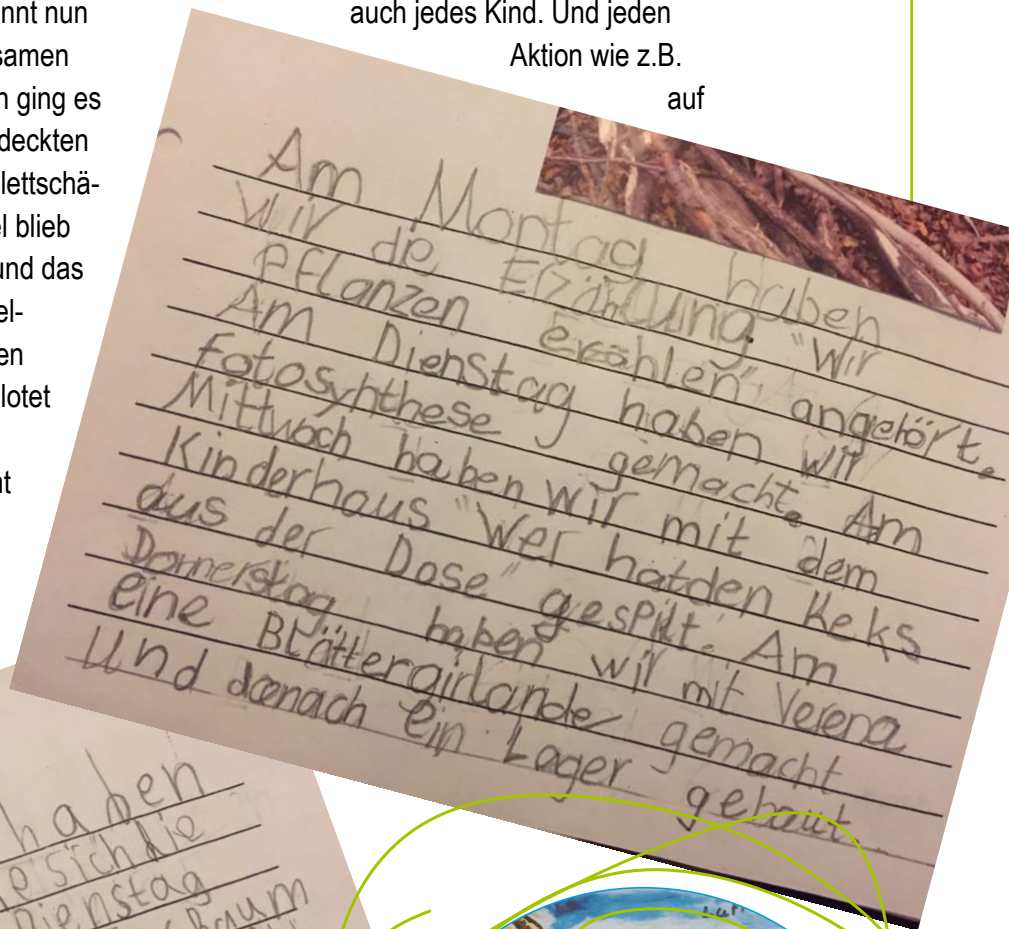 nnt nun
samen
n ging es
deckten
lettschä-
el blieb
und das
el-
en
lotet
nt
auch jedes Kind. Und jeden
Aktion wie z.B.
auf
Am Montag haben
wir die Erzählung "Wir
Pflanzen erzählen" angehört.
Am Dienstag haben wir
Fotosynthese gemacht. Am
Mittwoch haben wir mit dem
Kinderhaus "Wer hat den Keks
aus der Dose" gespilt. Am
Donnerstag haben wir mit Verena
eine Blättergirlande gemacht
Und danach ein Lager gebaut.
haben
e sich die
Dienstag
baum
Luft